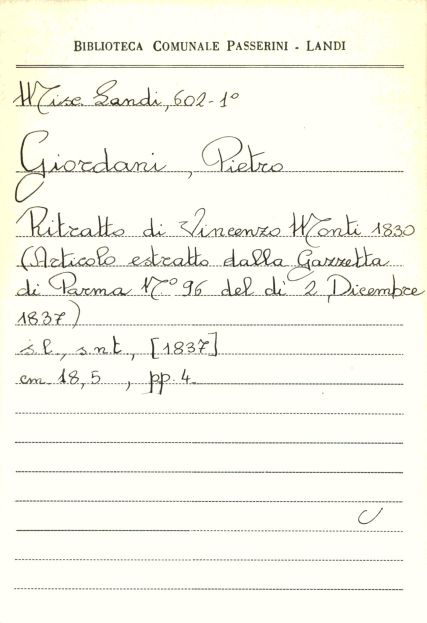 BIBLIOTECA COMUNALE PASSERINI - LANDI
Misc. Landi, 602-1°
Giordani, Pietro
Ritratto di Vincenzo Monti 1830
(Articolo estratto dalla Gazzetta
di Parma N° 96 del di 2 Dicembre
1837)
s.l., s.n.t., [1837]
cm 18,5 , pp. 4